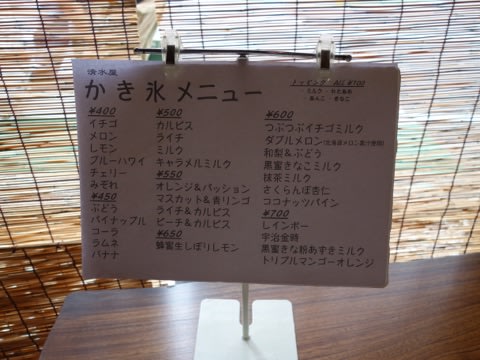 清水屋
かき氷メニュー
トッピング ALL ¥100
ミルク・わたあめ
あんこ・きなこ
¥400
イチゴ
メロン
レモン
ブルーハワイ
チェリー
みぞれ
¥450
ぶどう
パイナップル
コーラ
ラムネ
バナナ
¥500
カルピス
ライチ
ミルク
キャラメルミルク
¥550
オレンジ&パッション
マスカット&青リンゴ
ライチ&カルピス
ピーチ&カルピス
¥650
蜂蜜生しぼりレモン
¥600
つぶつぶイチゴミルク
ダブルメロン(北海道メロン果汁使用)
和梨&ぶどう
黒蜜きなこミルク
抹茶ミルク
さくらんぼ杏仁
ココナッツパイン
¥700
レインボー
宇治金時
黒蜜きな粉あずきミルク
トリプルマンゴーオレンジ